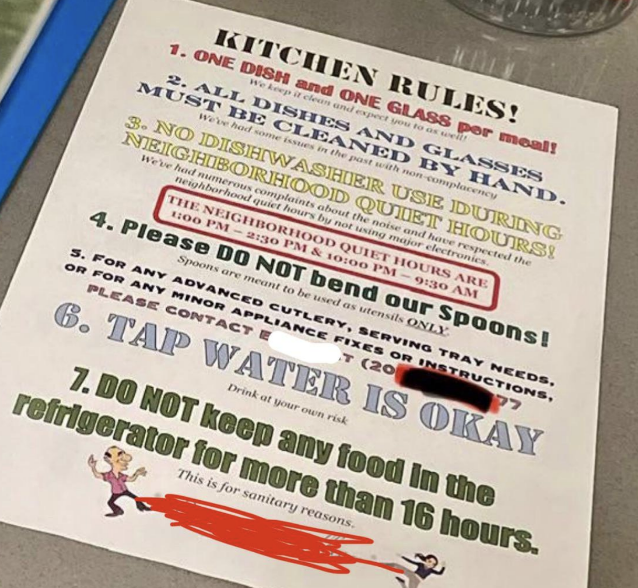 KITCHEN RULES!
1. ONE DISH and ONE GLASS per meal!
We keep it clean and expect you to as well!
2. ALL DISHES AND GLASSES
MUST BE CLEANED BY HAND.
We've had some issues in the past with non-complacency
3. NO DISHWASHER USE DURING
NEIGHBORHOOD QUIET HOURS!
We've had numerous complaints about the noise and have respected the
neighborhood quiet hours by not using major electronics.
THE NEIGHBORHOOD QUIET HOURS ARE
1:00 PM – 2:30 PM & 10:00 PM – 9:30 AM
4. Please DO NOT bend our Spoons!
Spoons are meant to be used as utensils ONLY
5. FOR ANY ADVANCED CUTLERY, SERVING TRAY NEEDS,
OR FOR ANY MINOR APPLIANCE FIXES OR INSTRUCTIONS,
PLEASE CONTACT E T (20 77
6. TAP WATER IS OKAY
Drink at your own risk
7. DO NOT keep any food in the
refrigerator for more than 16 hours.
This is for sanitary reasons.